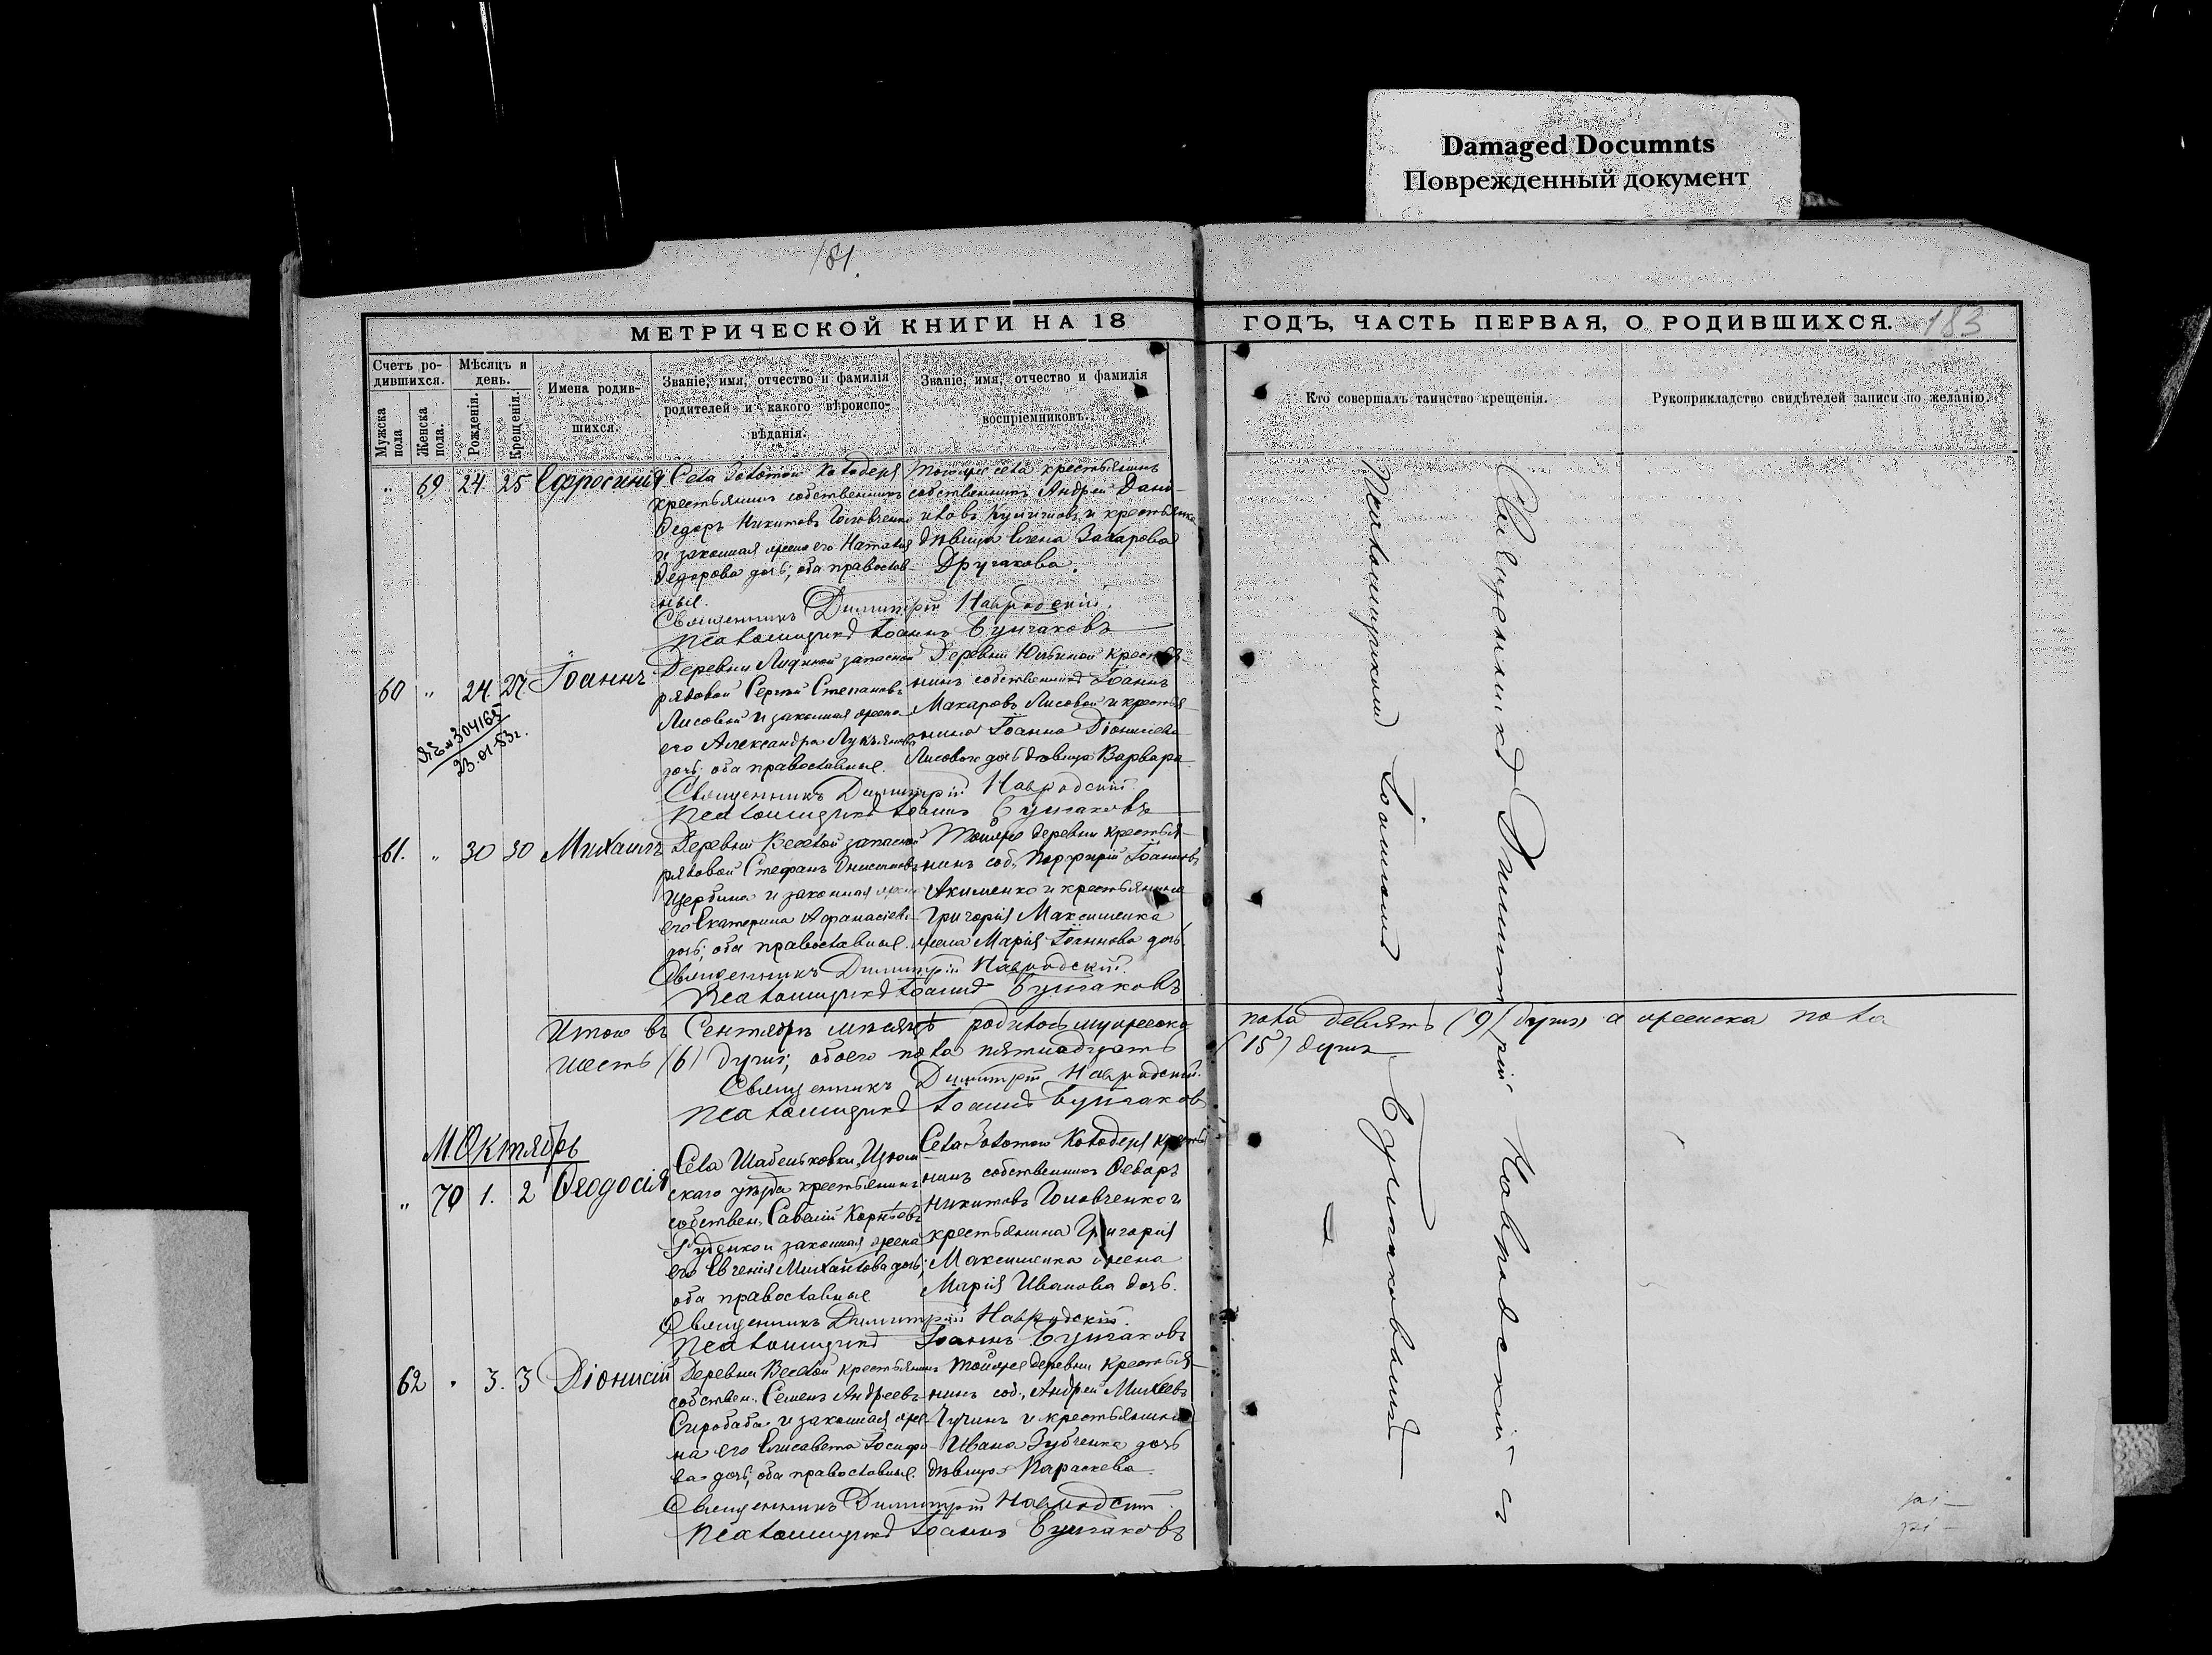 Damaged Documnts
Поврежденный документ
181.
МЕТРИЧЕСКОЙ КНИГИ НА 18
ГОДЪ, ЧАСТЬ ПЕРВАЯ, О РОДИВШИХСЯ.
183
Счетъ ро-
дившихся.
Мужска
пола
Женска
пола.
Мѣсяцъ и
день.
Рожденія.
Крещенія.
Имена родив-
шихся.
Званіе, имя, отчество и фамилія
родителей и какого вѣроиспо-
вѣданія.
Званіе, имя, отчество и фамилія
воспріемниковъ.
Кто совершалъ таинство крещенія.
Рукоприкладство свидѣтелей записи по желанію.
" 69 24 25 Ефросинія
Села Золотой Колодезя
крестьянинъ собственникъ
Федоръ Никитовъ Головченко
и законная жена его Наталія
Федорова дочь; оба православ-
ные.
тогоже села крестьянинъ
собственникъ Андрей Дани-
иловъ и крестьянка
дѣвица Елена Захарова
Другакова.
Священникъ Димитрій Навродскій.
Псаломщикъ Іоаннъ Булгаковъ
60 " 24 27 Іоаннъ
№304165
23.01.53г.
Деревни запасной
рядовой Сергѣй Степановъ
Лисовой и законная жена
его Александра Лукьянова
дочь; оба православные.
Деревни крестья-
нинъ собственникъ Іоаннъ
Макаровъ Лисовой и крестья-
нина Іоанна Діонисіева
Лисовой дочь дѣвица Варвара
Священникъ Димитрій Навродскій
Псаломщикъ Іоаннъ Булгаковъ
61. " 30 30 Михаилъ
Деревни Веселой запасной
рядовой Стефанъ
Щербина и законная жена
его Екатерина Афанасіева
дочь; оба православные.
Тойже деревни крестья-
нинъ соб. Порфирій Іоанновъ
Акименко и крестьянина
Григорія Максименка
жена Марія Іоаннова дочь.
Священникъ Димитрій Навродскій.
Псаломщикъ Іоаннъ Булгаковъ
Итого въ Сентябрѣ мѣсяцѣ родилось мужеска пола девять (9) душъ а женска пола
шесть (6) душъ; обоего пола пятнадцать (15) душъ
Священникъ Димитрій Навродскій.
Псаломщикъ Іоаннъ Булгаковъ
М. Октябрь
" 70 1. 2 Ѳеодосія
Села Шабельковки, Изюм
скаго уѣзда крестьянинъ
собствен. Савелій Корнѣевъ
Руденко и законная жена
его Евгенія Михайлова дочь;
оба православные
Села Золотой Колодезя крестья
нинъ собственникъ Ѳедоръ
Никитовъ Головченко и
крестьянина Григорія
Максименка жена
Марія Иванова дочь.
Священникъ Димитрій Навродскій.
Псаломщикъ Іоаннъ Булгаковъ
62 " 3. 3 Діонисій
Деревни Веселой крестьянинъ
собствен. Семенъ Андреевъ
Сиробаба и законная же-
на его Елисавета Іосифо-
ва дочь; оба православные.
Тойже деревни крестья-
нинъ соб. Андрей Михеевъ
Чучинъ и крестьянина
Ивана Зубченка дочь
дѣвица Параскева
Священникъ Димитрій Навродскій.
Псаломщикъ Іоаннъ Булгаковъ
Священникъ Димитрій Навродскій съ
Псаломщикомъ Іоанномъ Булгаковымъ